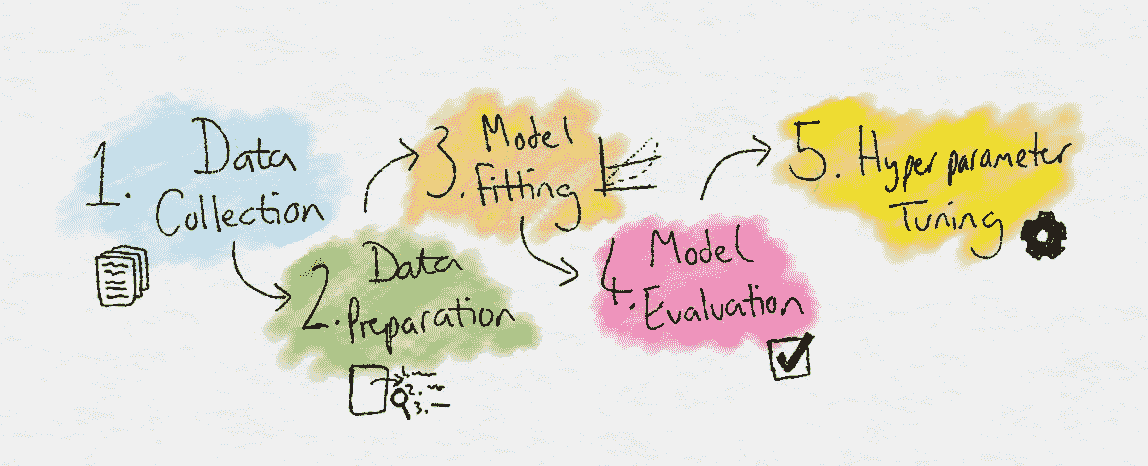 1. Data
Collection
2. Data
Preparation
3. Model
Fitting
4. Model
Evaluation
5. Hyperparameter
Tuning
1.
2.
3.